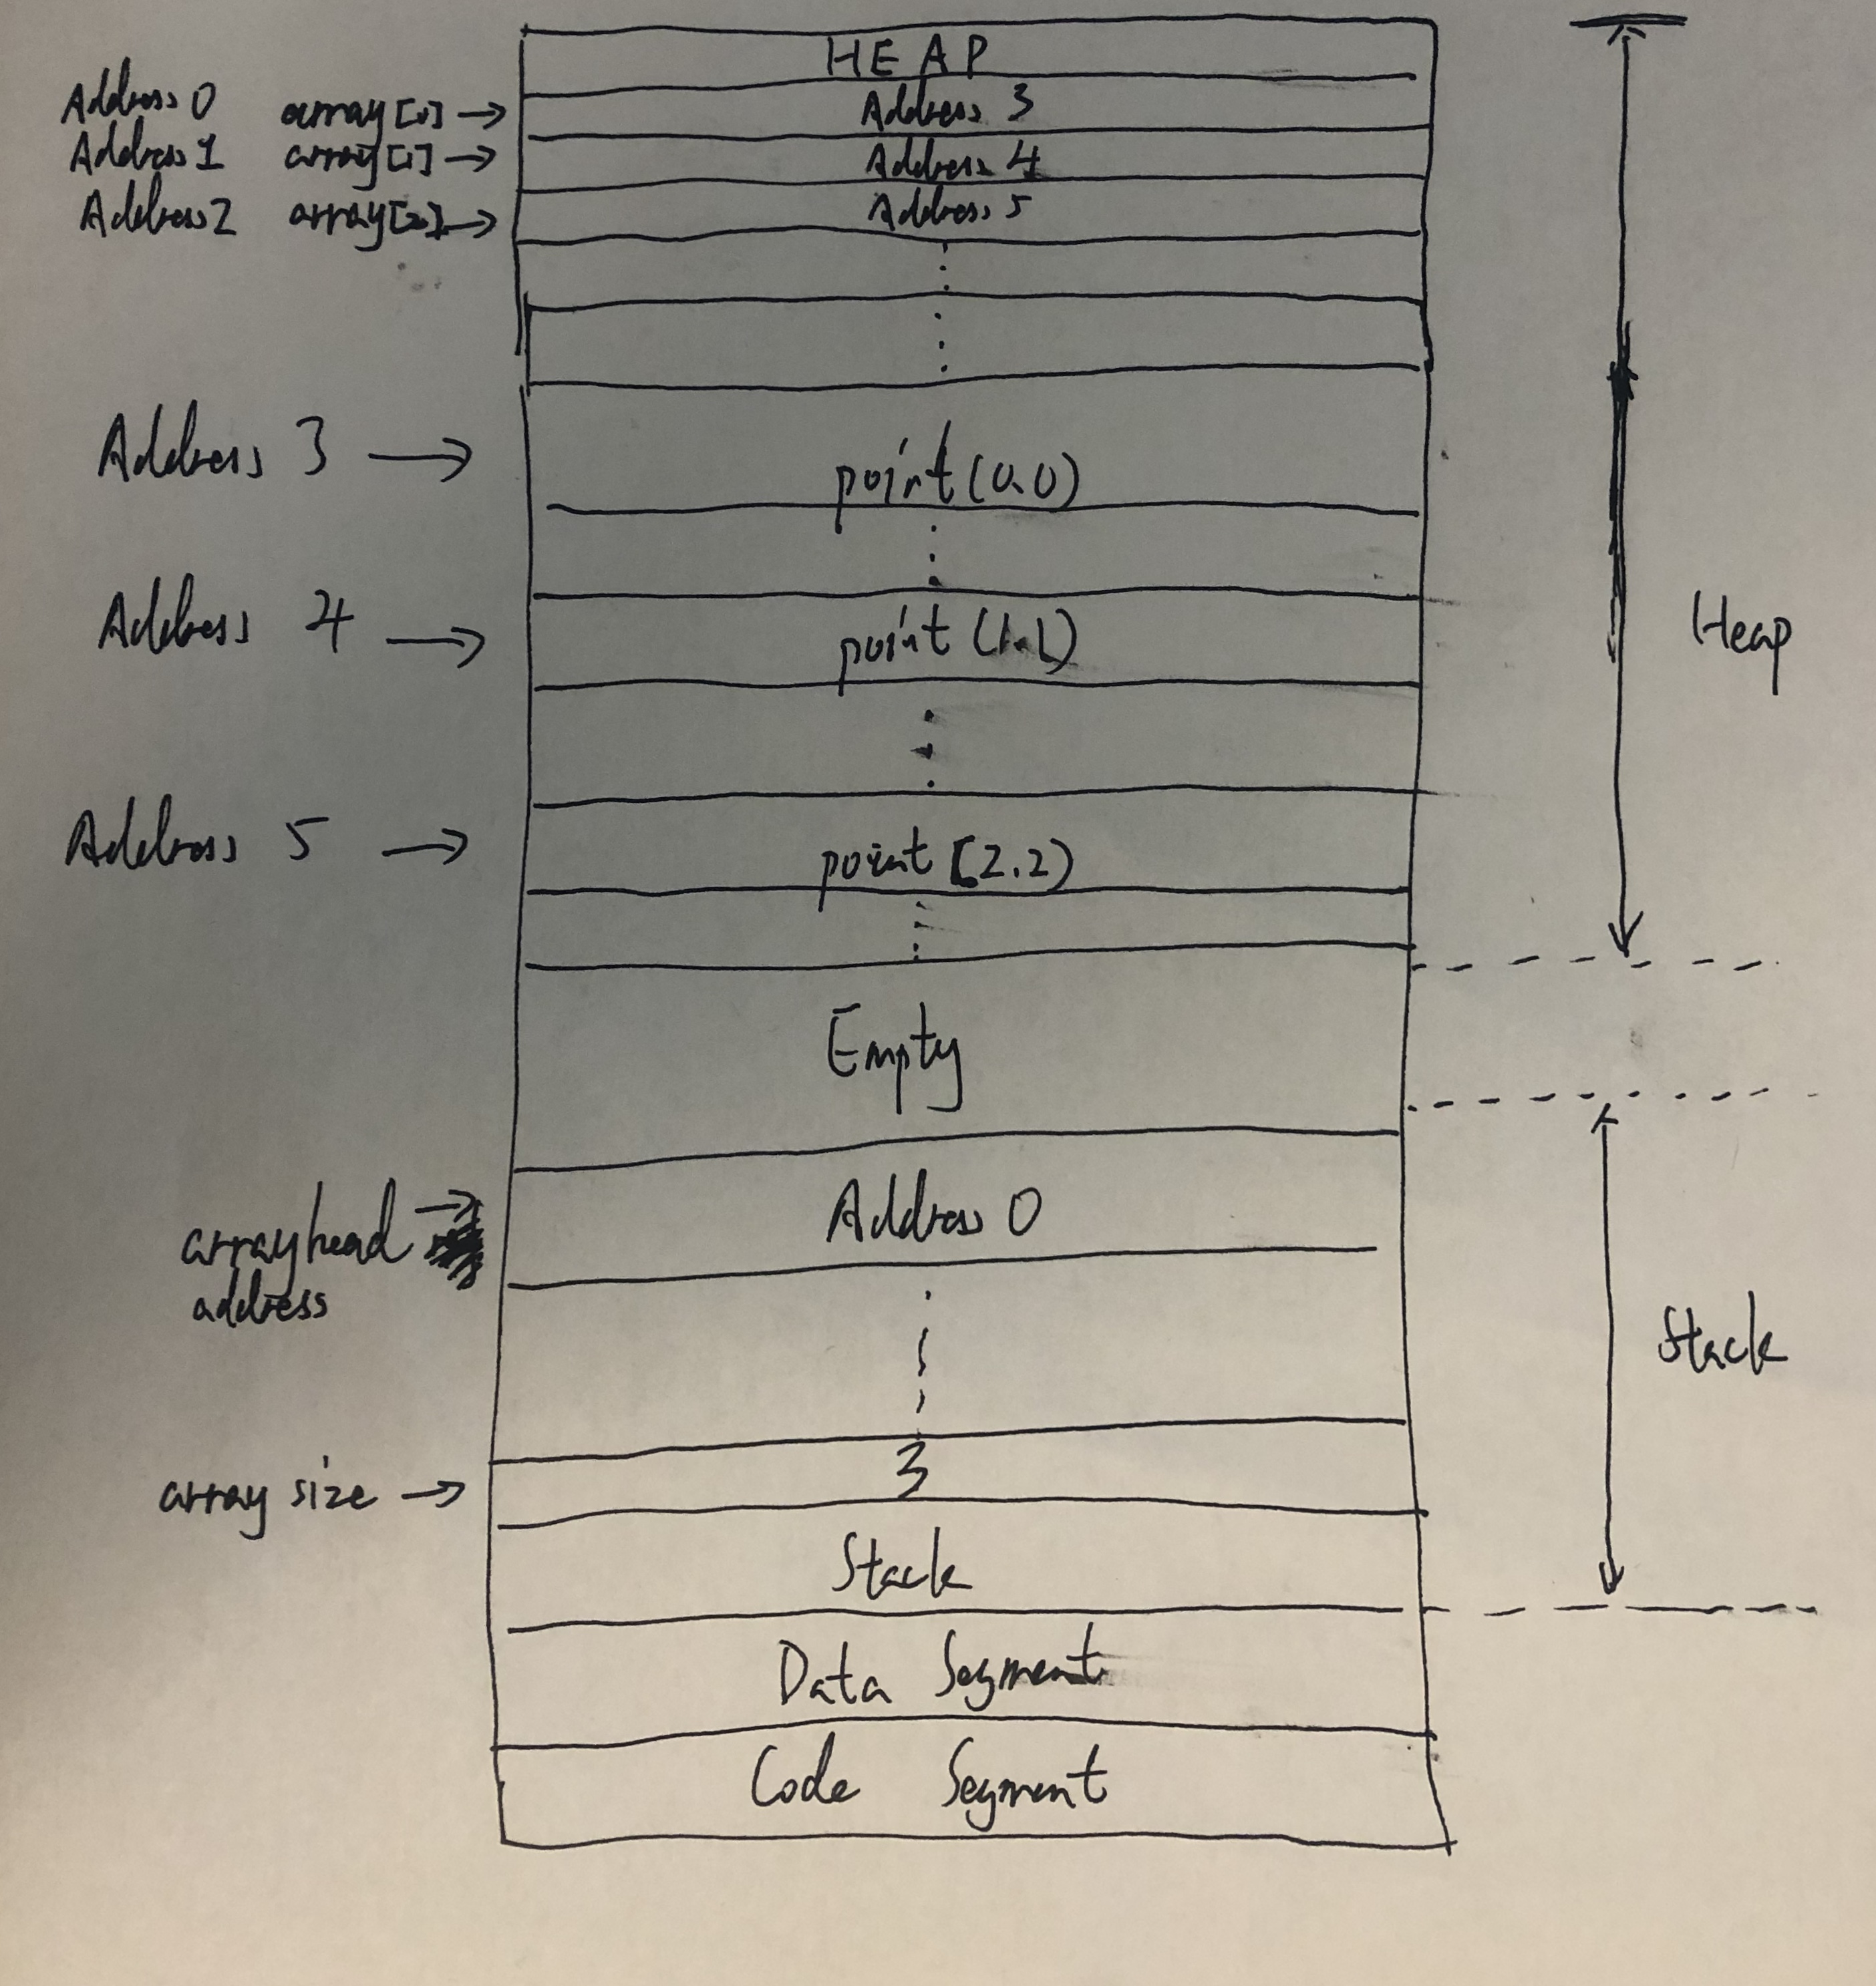 HEAP
Address 0 array[0] → Address 3
Address 1 array[1] → Address 4
Address 2 array[2] → Address 5
Address 3 → point(0.0)
Address 4 → point(1.1)
Heap
Address 5 → point[2.2)
Empty
arrayhead → Address 0
address
Stack
array size → 3
Stack
Data Segment
Code Segment